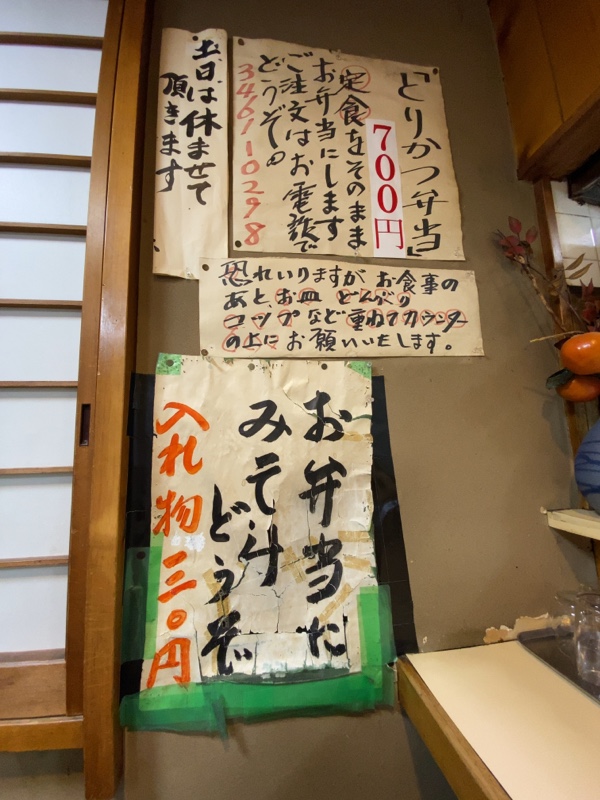 「とりかつ弁当」
700円
定食をそのまま
お弁当にします
ご注文はお電話で
どうぞ
3461-0298
土日は休ませて
頂きます
恐れいりますが お食事の
あと、お皿 どんぶり
コップなど重ねてカウンター
の上にお願いいたします。
お弁当に
みそ汁
どうぞ
入れ物三〇円